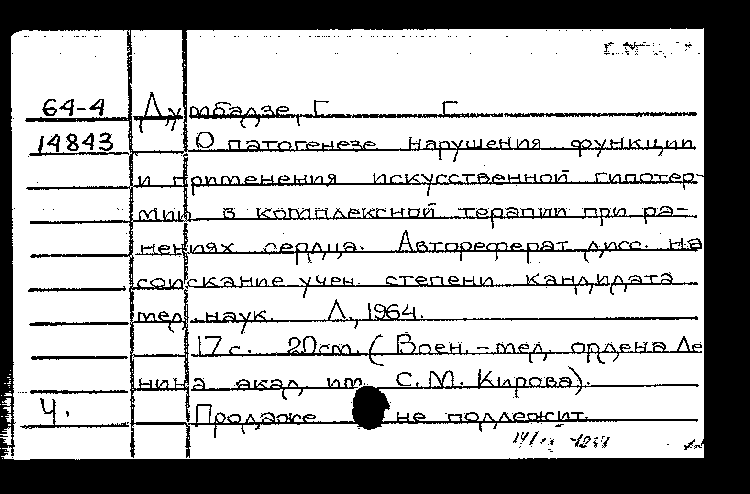 64-4 Думбадзе, Г. Г.
14843 О патогенезе нарушения функции
и применения искусственной гипотер-
мии в комплексной терапии при ра-
нениях сердца. Автореферат дисс. на
соискание учен. степени кандидата
мед. наук. Л., 1964.
17 с. 20 см. (Воен.-мед. ордена Ле
нина акад. им. С. М. Кирова).
Ч. Продаже не подлежит.